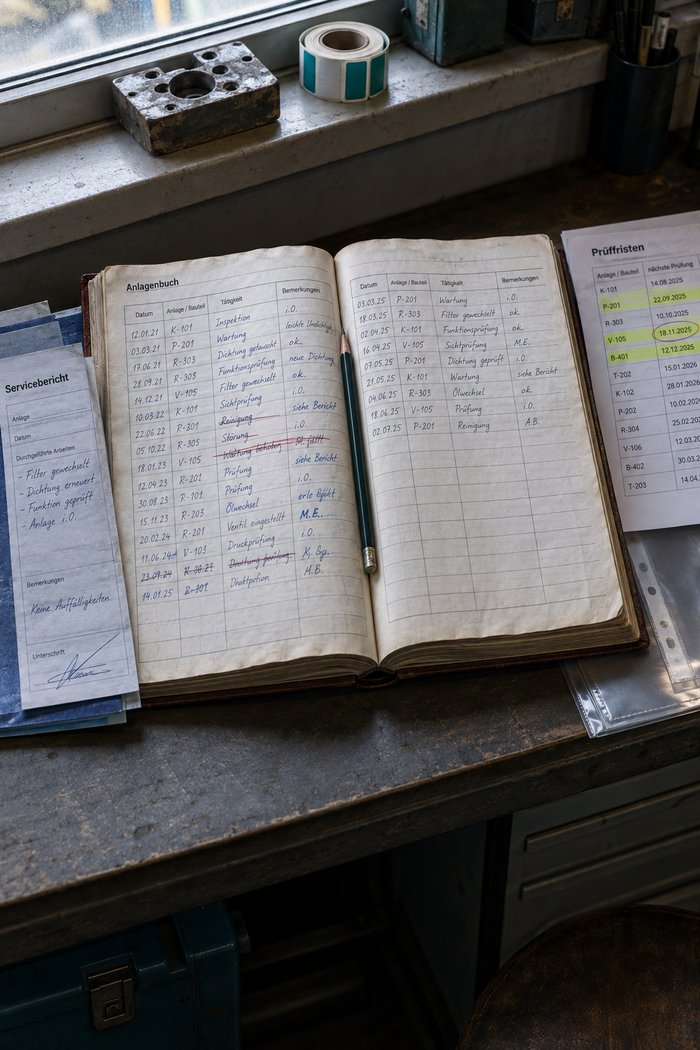 Servicebericht
Anlage
Datum
Durchgeführte Arbeiten
- Filter gewechselt
- Dichtung erneuert
- Funktion geprüft
- Anlage i.O
Bemerkungen
Keine Auffälligkeiten
Unterschrift
Anlagenbuch
Datum Anlage / Bauteil Tätigkeit Bemerkungen
12.01.21 K-101 Inspektion i.O.
03.03.21 P-201 Wartung leichte Undichtigk.
17.06.21 R-303 Dichtung getauscht ok.
28.09.21 R-303 Dichtung geprüft neue Dichtung
14.12.21 V-105 Filter gewechselt ok.
10.03.22 K-101 Sichtprüfung siehe Bericht
22.06.22 R-301 Reinigung i.O.
05.10.22 R-305 Störung
18.01.23 V-105 Wartung
12.04.23 R-201 Prüfung siehe Bericht
30.08.23 R-201 Prüfung i.O.
15.11.23 R-203 Ölwechsel
20.02.24 R-201 Ventil eingestellt M.E.
11.06.24 V-103 Druckprüfung i.O.
23.09.24
14.01.25
Datum Anlage / Bauteil Tätigkeit Bemerkungen
03.03.25 P-201 Wartung i.O.
18.03.25 R-303 Filter gewechselt ok.
02.04.25 K-101 Funktionsprüfung ok.
16.04.25 V-105 Sichtprüfung M.E.
07.05.25 P-201 Dichtung geprüft i.O.
21.05.25 K-101 Wartung siehe Bericht
04.06.25 R-303 Ölwechsel ok.
18.06.25 V-105 Prüfung i.O.
02.07.25 P-201 Reinigung A.B.
Prüffristen
Anlage / Bauteil nächste Prüfung
K-101 14.08.2025
P-201 22.09.2025
R-303 10.10.2025
V-105 18.11.2025
B-401 12.12.2025
T-202 15.01.2026
K-102 28.01.2026
P-202 10.02.202
R-304 25.02.202
V-106 12.03.202
B-402 30.03.2
T-203 14.04.